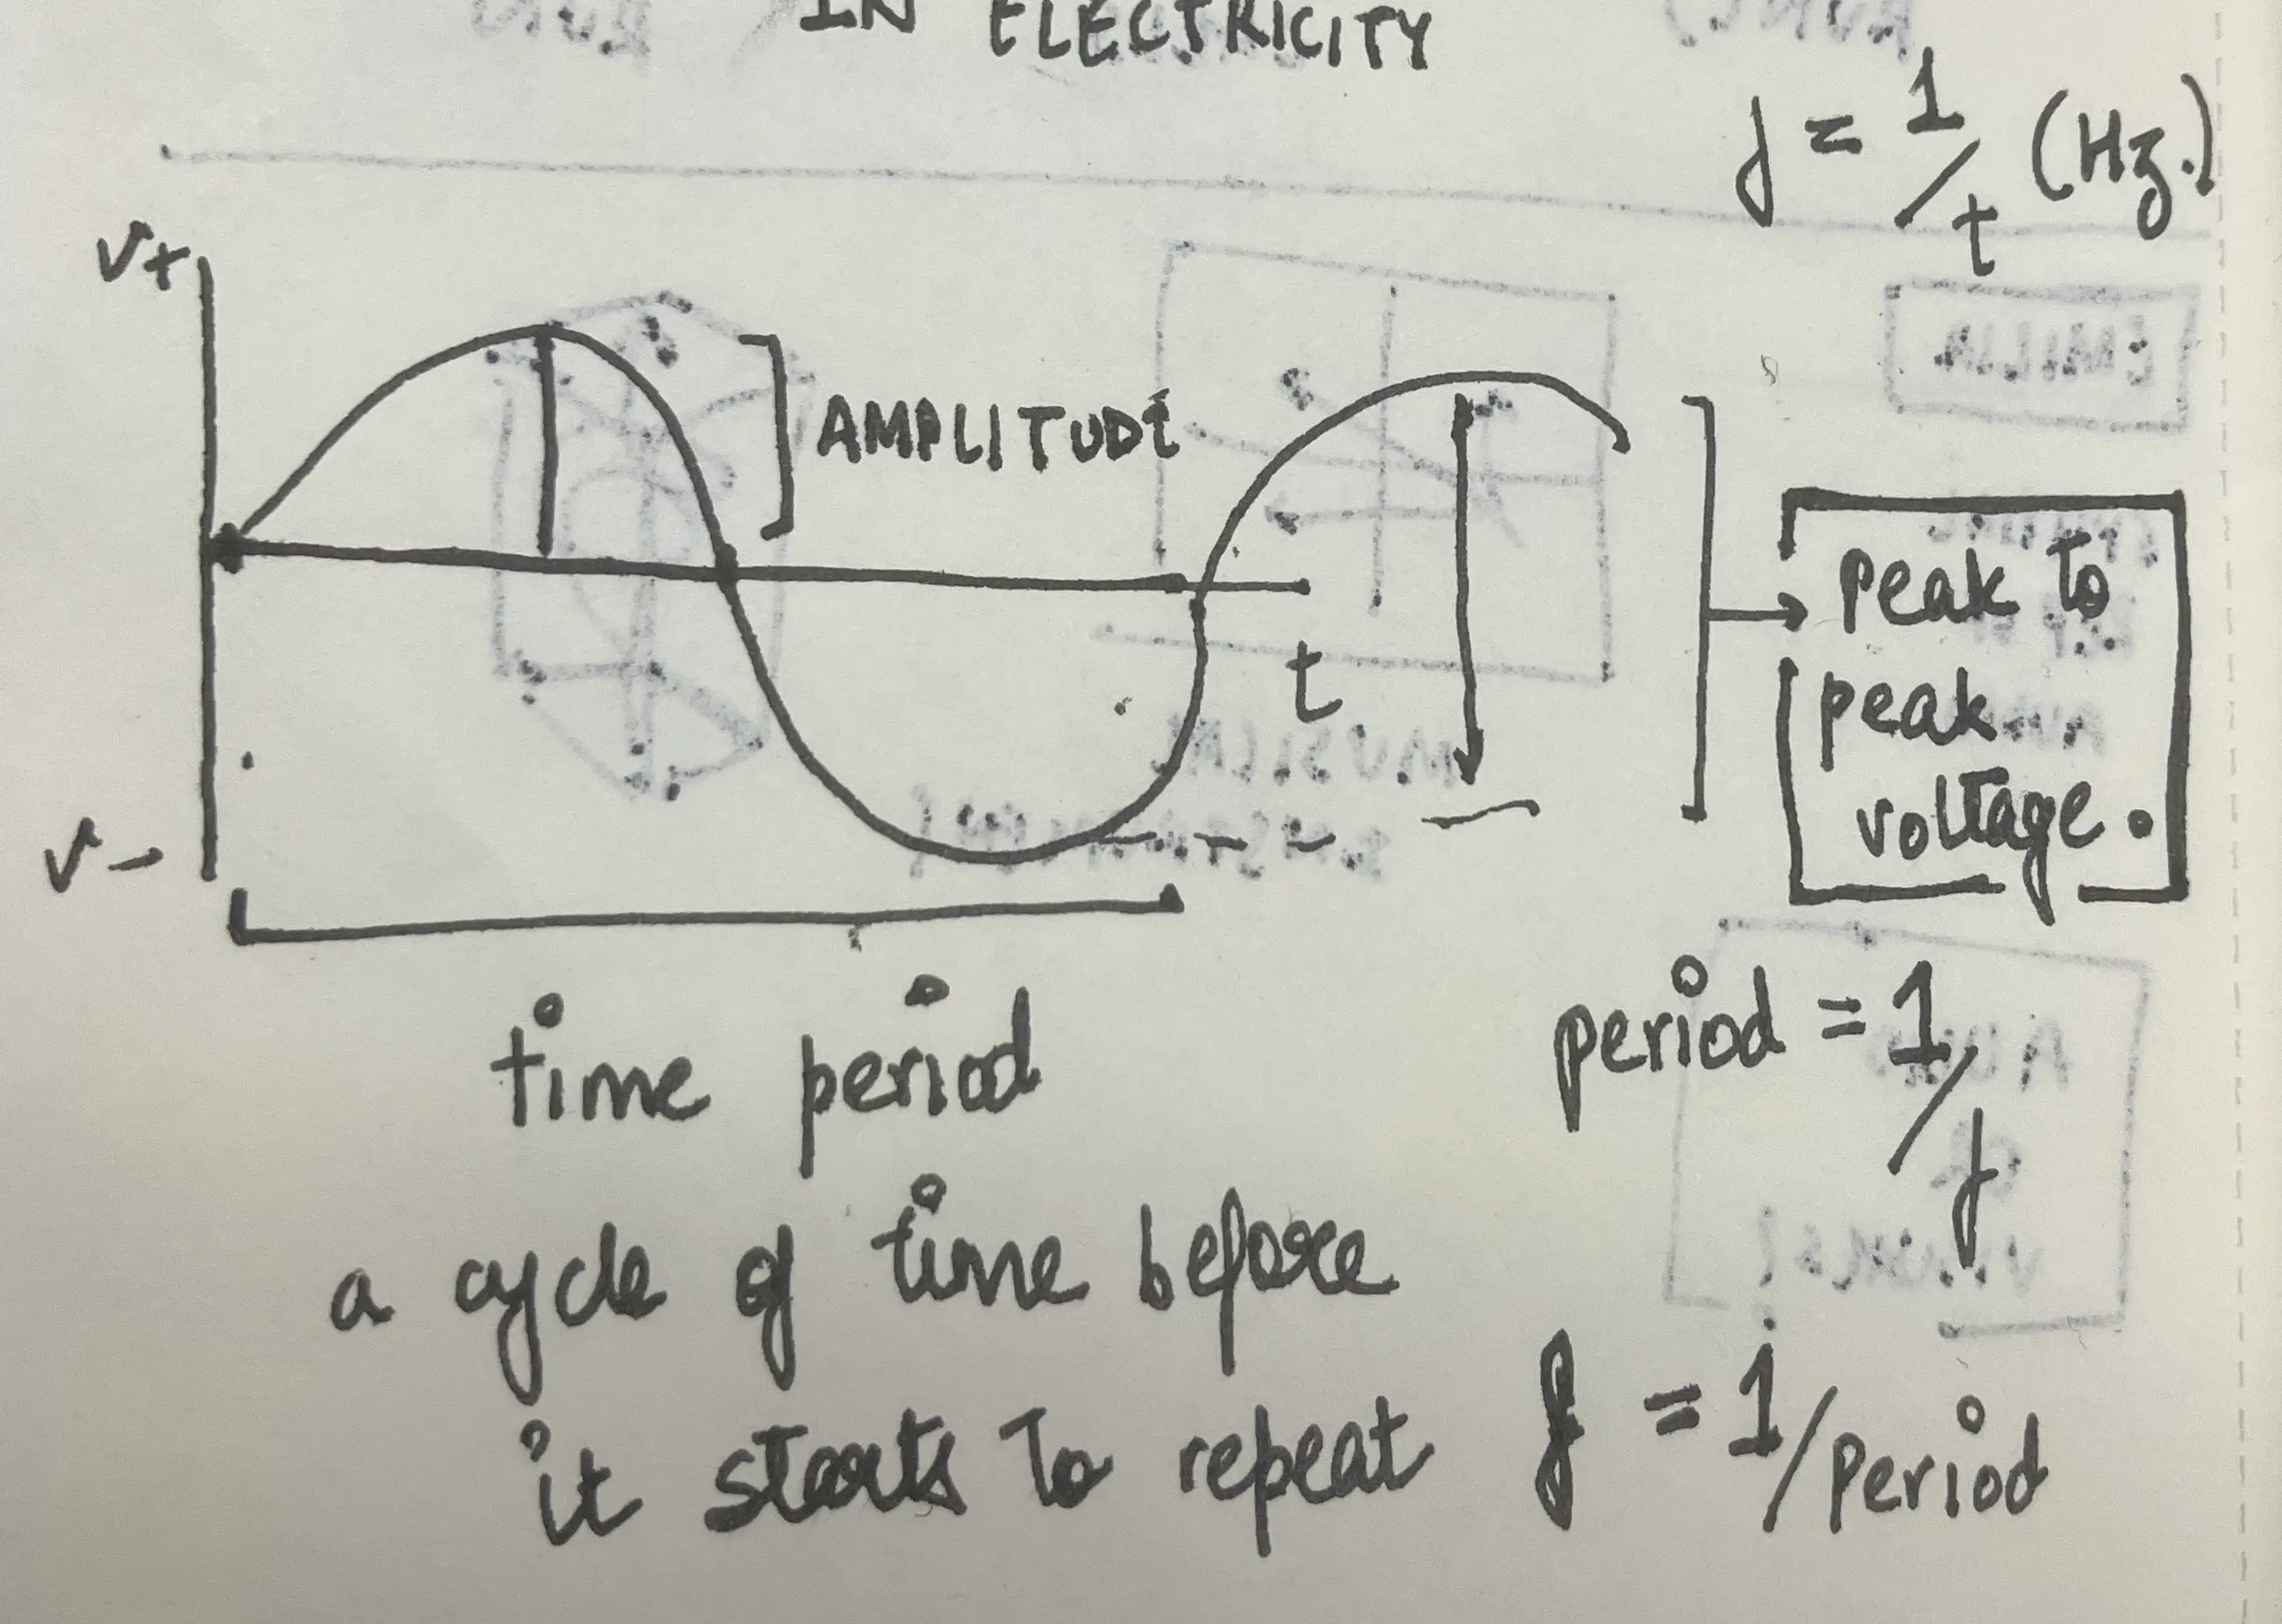 IN ELECTRICITY
f = 1/t (Hz.)
V+
AMPLITUDE
t
peak to
peak
voltage.
V-
time period
period = 1/f
a cycle of time before
it starts to repeat
f = 1/period